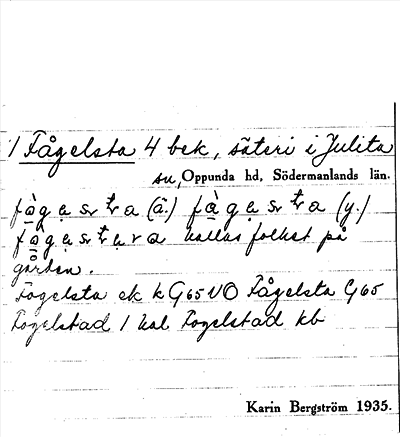 1 Fågelsta 4 bek, säteri i Julita
sn, Oppunda hd, Södermanlands län.
fàgẹsṭra (ä.) fàgẹsṭra (y.)
fågẹsṭẹra kallas folket på
gården.
Fogelsta ek k G65 VO Fågelsta G65
Fogelstad 1 hal Fogelstad kb
Karin Bergström 1935.